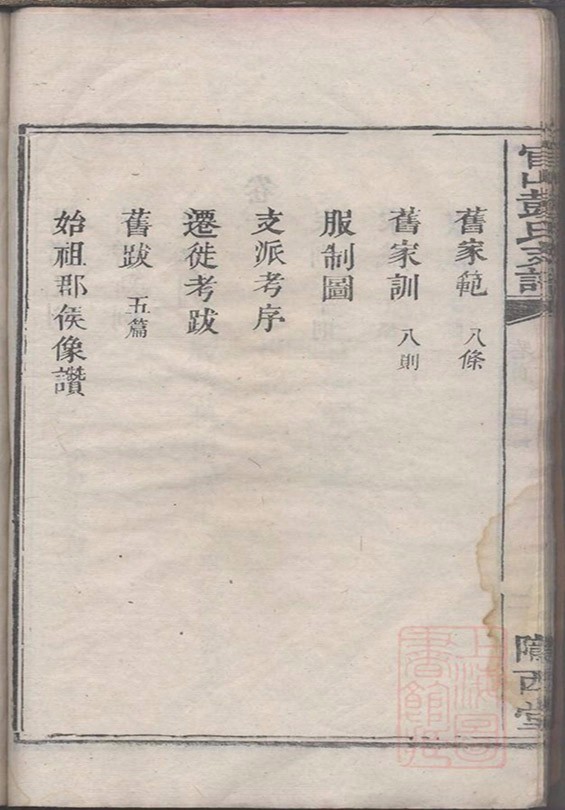 官山彭氏支譜
隴西堂
舊家範 八條
舊家訓 八則
服制圖
支派考序
遷徙考跋
舊跋 五篇
始祖郡侯像讚
上海圖
書館藏